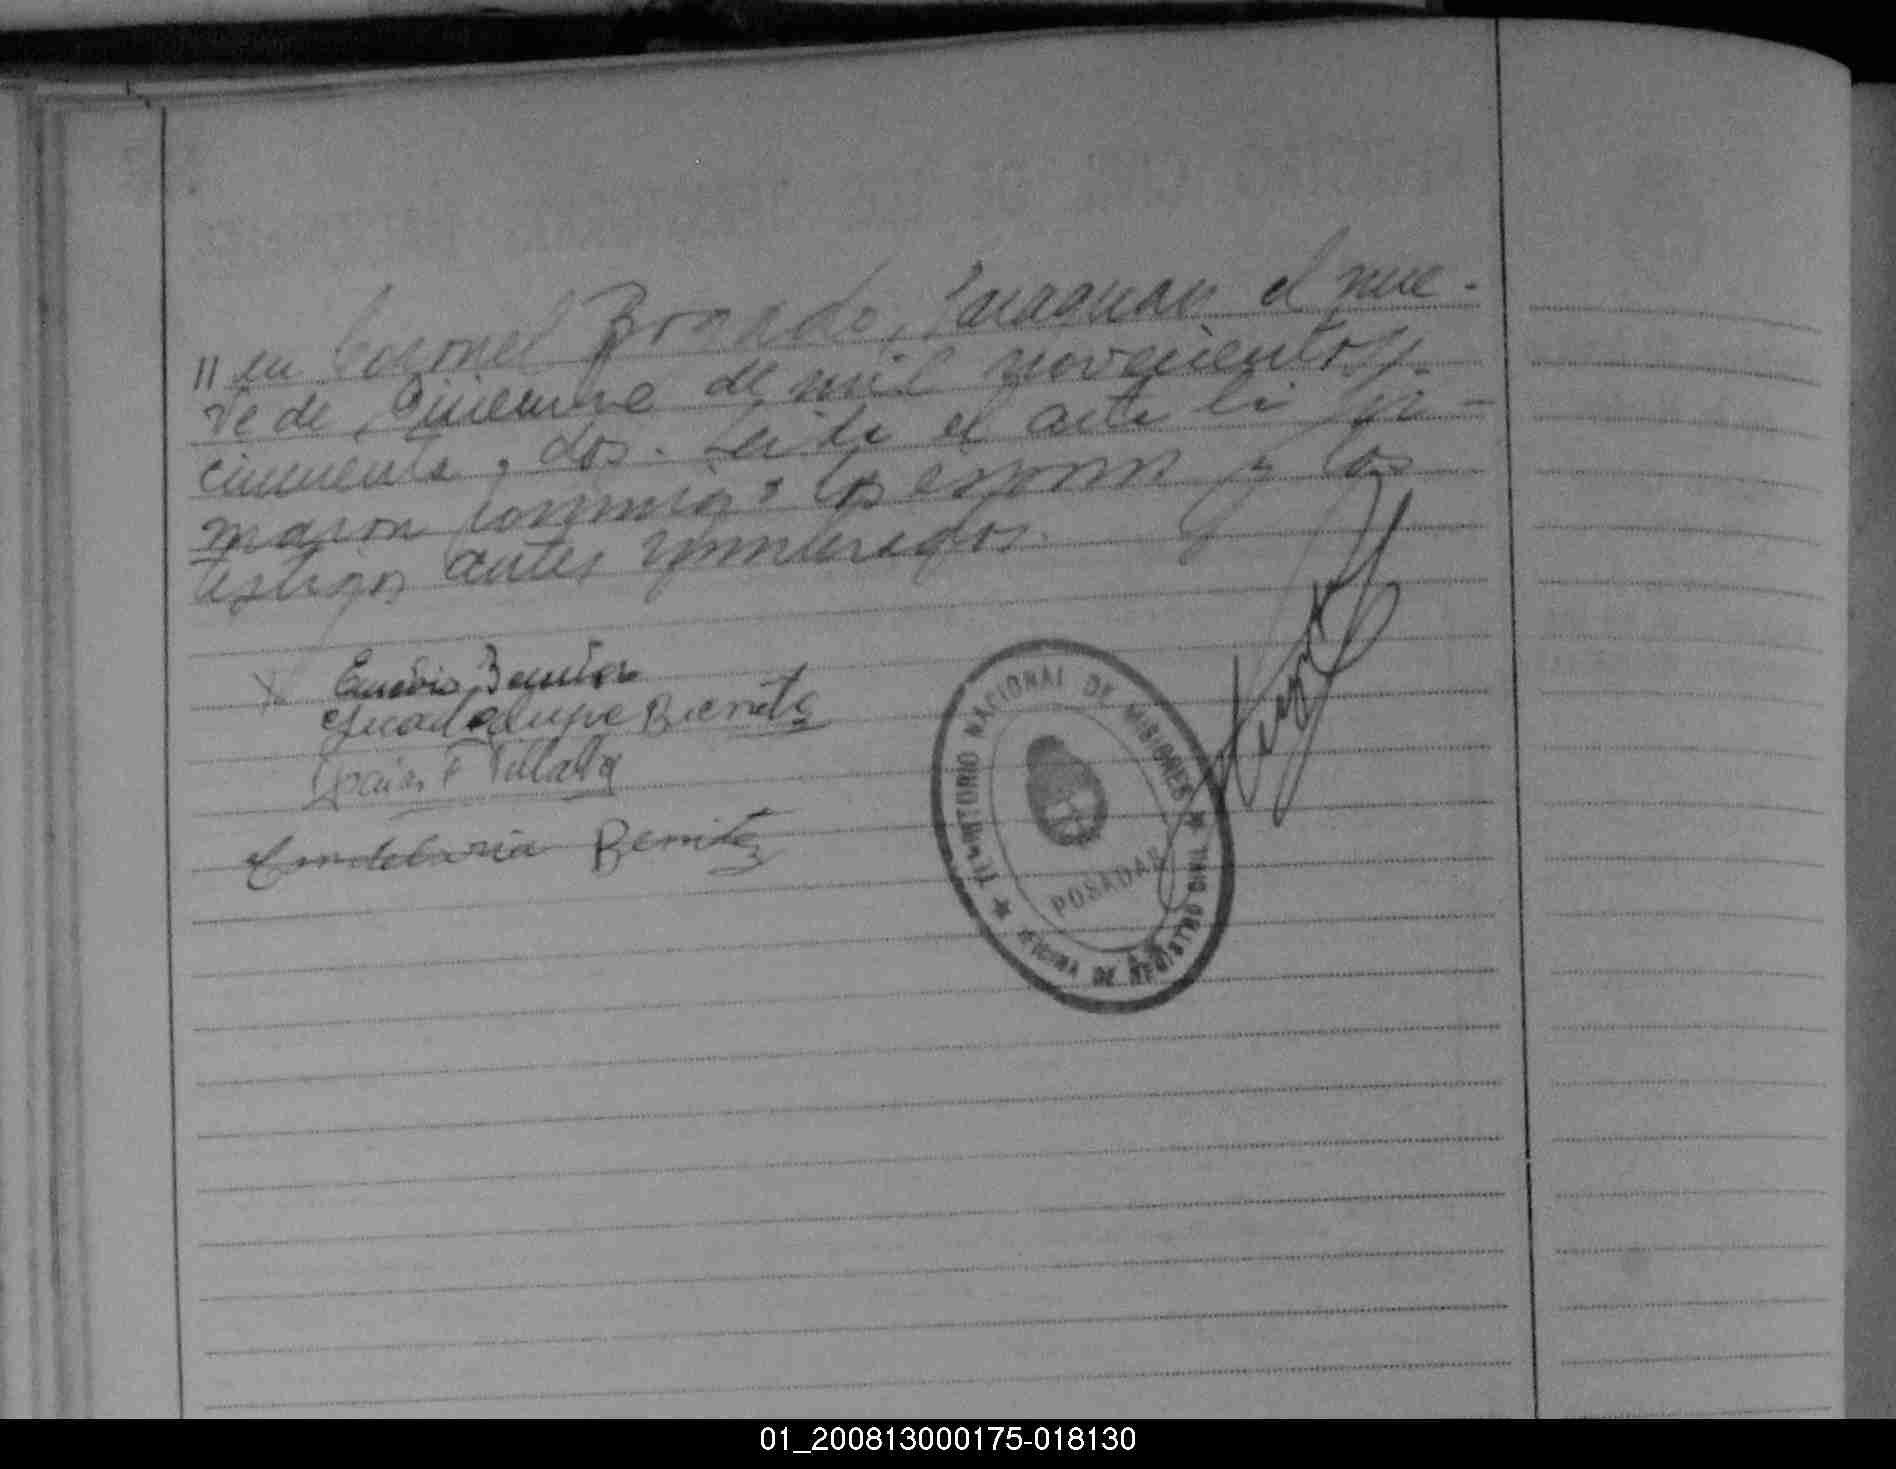 " en Coronel Bogado, Paraguay el nue-
ve de, Diciembre de mil novecientos
cincuenta, dos. Leida el acta la fir-
maron conmigo los esposos y los
testigos antes nombrados.
Benitez
Guadalupe Benitez
F Villalba
Candelaria Benitez
TERRITORIO NACIONAL DE MISIONES
POSADAS
OFICINA DE REGISTRO CIVIL
01_200813000175-018130